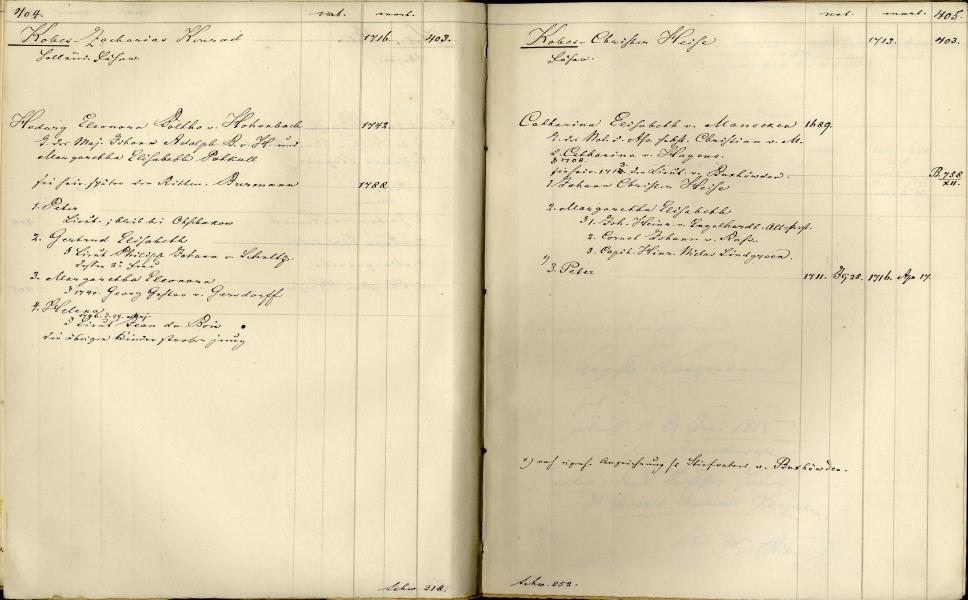 404. nat. mort.
Kobes - Zacharias Konrad 1716. 403.
Holländ. Fähnr.
Hedwig Eleonora Boltho v. Hohenbach 1742.
T. des Maj. Johann Adolph B. v. H. und
Margaretha Elisabeth Patkull
sie heir. später den Rittm. Burmann 1788.
1. Peter
Lieut.; blieb bei Otschakow
2. Gertrud Elisabeth
Lieut. Philipp Johann v. Schultz.
3. Margaretha Eleonora
1740. Georg Gustav v. Gersdorff
4. Helena
Lieut. Jean du Bois
die übrigen Kinder starben jung
Schw. 318.
nat. mort. 405.
Kobes - Christer Heise 1713. 403.
Fähnr.
Catharina Elisabeth v. Manecken 1689.
T. des Christian v. M.
u. Catharina v. Hagens.
1708.
sie heir. den Lieut. v. Buxhöwden. B. 758
XII.
1. Johann Christer Heise
2. Margaretha Elisabeth
1. Joh. Heinr. v. Engelhardt
2. Cornet Johann v.
3. Capit. Hinr. Niclas Lindgreen.
x)
3. Peter 1711. 28. 1716. Apr 17.
x) nach eigenh. Aufzeichnung des Stiefvaters v. Buxhöwden.
Schw. 252.